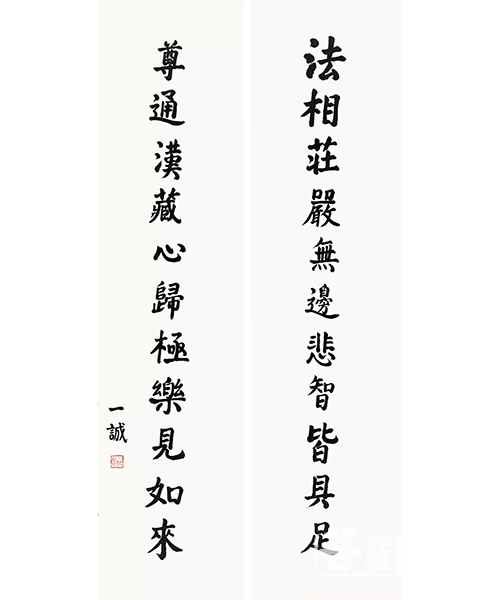 法相莊嚴無邊悲智皆具足
尊通漢藏心歸極樂見如來
一誠
菩薩